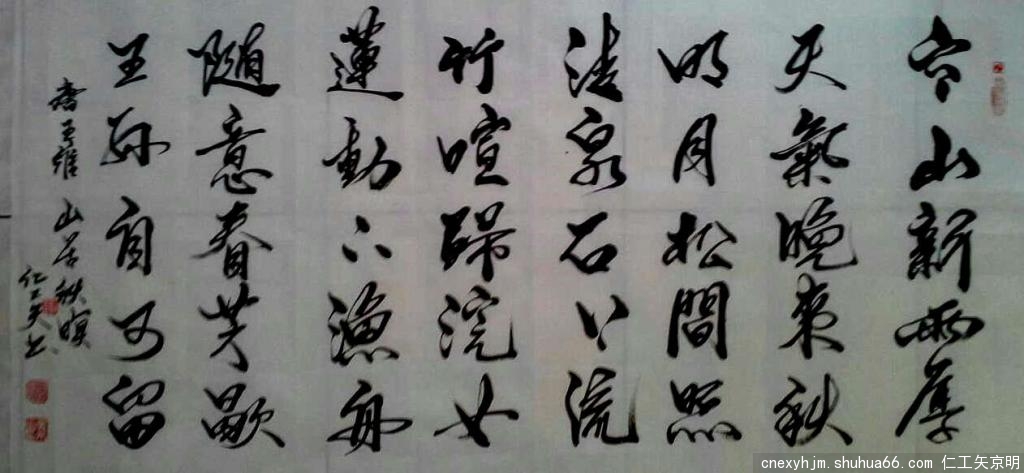 空山新雨
天氣晚來秋
明月松間照
清泉石上流
竹喧歸浣女
蓮動下漁舟
隨意春芳歇
王孫自可留
書王維 山居秋暝
仁工矢书
cnexyhjm.shuhua66.com 仁工矢京明